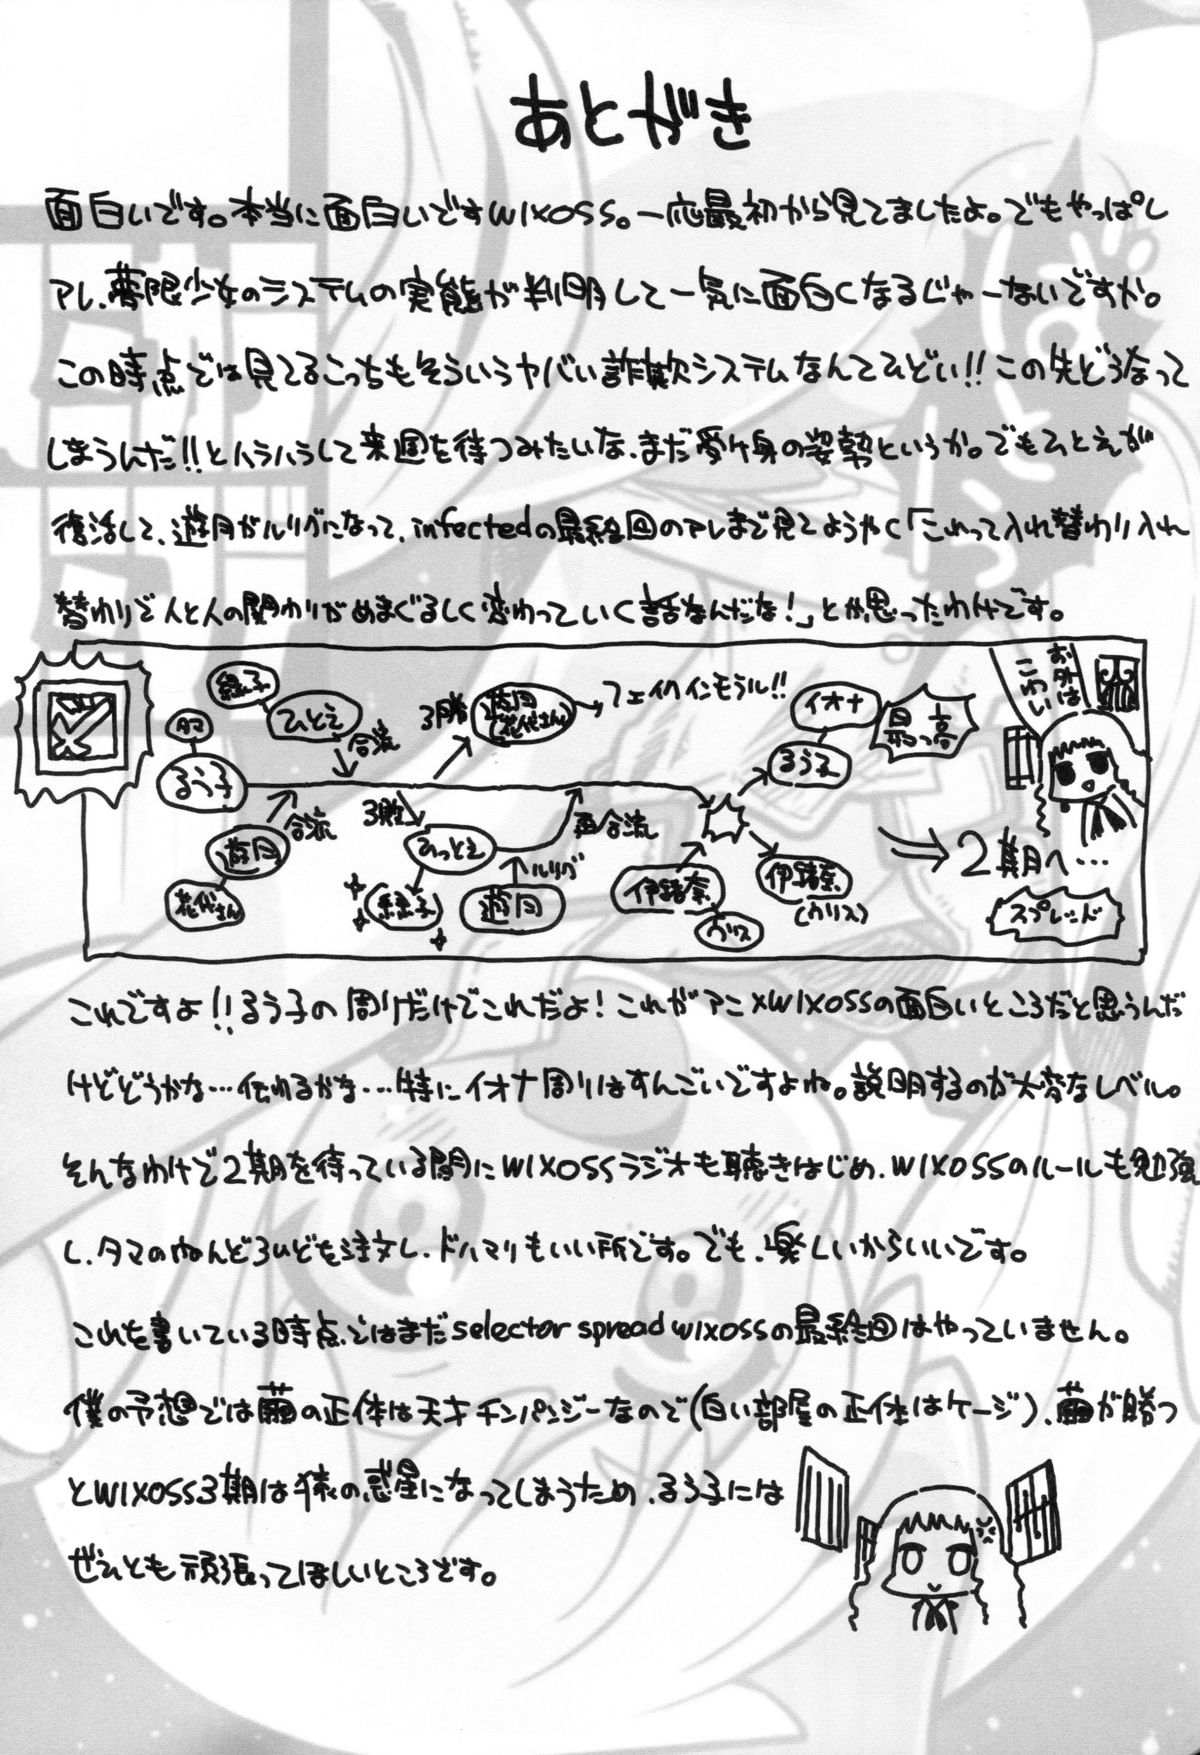 あとがき
面白いです。本当に面白いですWIXOSS。一応最初から見てましたよ。でもやっぱし
アレ、夢限少女のシステムの実態が判明して一気に面白くなるじゃーないですか。
この時点では見てるこっちもそういうヤバい詐欺システムなんてひどい!!この先どうなって
しまうんだ!!とハラハラして来週を待つみたいな、まだ受け身の姿勢というか。でもひとえが
復活して、遊月がルリグになって、infectedの最終回のアレまで見てようやく「これって入れ替わり入れ
替わりで人と人の関わりがめまぐるしく変わっていく話なんだな!」とか思ったわけです。
タマ
るう子
緑子
ひとえ
合流
遊月
花代さん
合流
3勝
遊月
(花代さん)
フェイクインモラル!!
3敗
ひとえ
緑子
遊月
ルリグ
再合流
伊緒奈
ウリス
イオナ
るう子
最っ高
伊緒奈
(ウリス)
2期へ…
スプレッド
お外は
こわい
これですよ!!るう子の周りだけでこれだよ!これがアニメWIXOSSの面白いところだと思うんだ
けどどうかな…伝わるかな…特にイオナ周りはすんごいですよね。説明するのが大変なレベル。
そんなわけで2期を待っている間にWIXOSSラジオも聴きはじめ、WIXOSSのルールも勉強
し、タマのねんどろいどを注文し、ドハマりもいい所です。でも、楽しいからいいです。
これを書いている時点ではまだselector spread wixossの最終回はやっていません。
僕の予想では繭の正体は天才チンパンジーなので(白い部屋の正体はケージ)、繭が勝つ
とWIXOSS3期は猿の惑星になってしまうため、るう子には
ぜひとも頑張ってほしいところです。